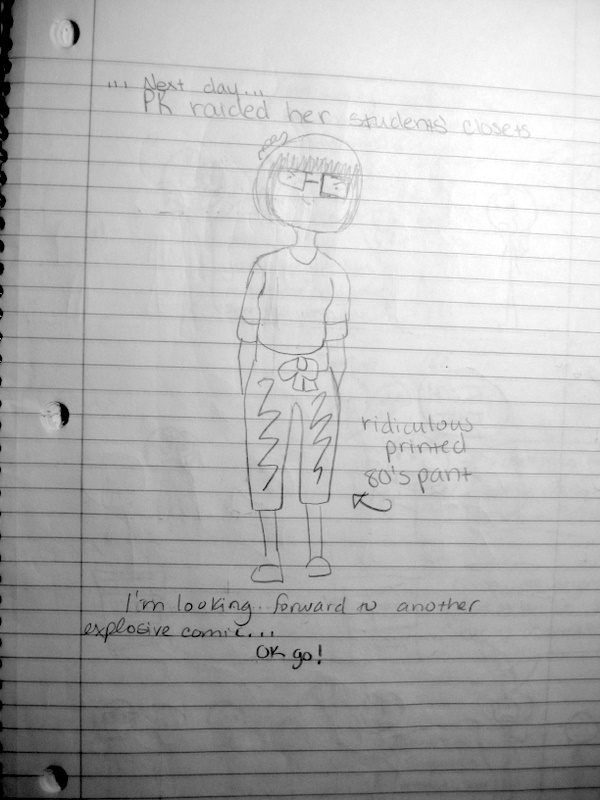 ... Next day...
PK raided her students' closets
ridiculous
printed
80's pant
I'm looking forward to another
explosive comic...
OK go!